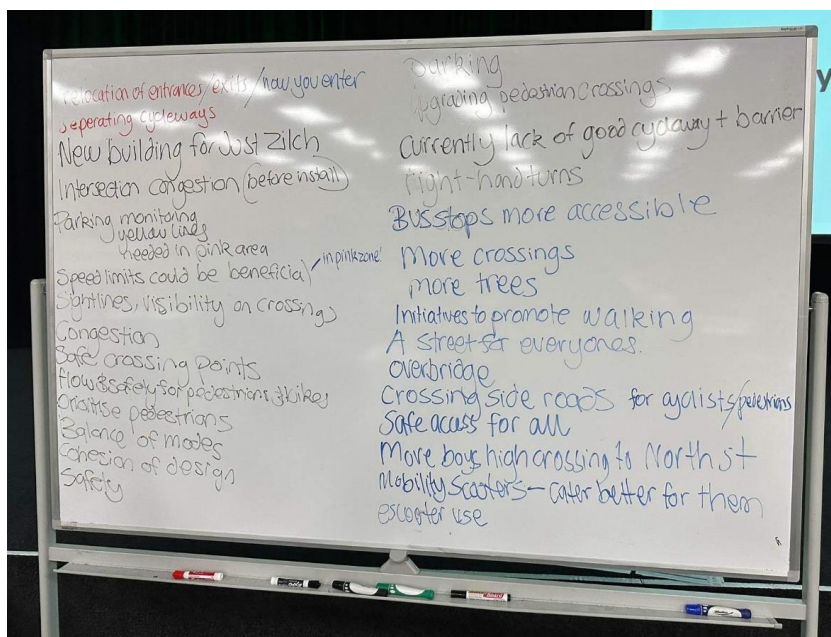 relocation of entrances/exits/how you enter
seperating cycleways
New building for Just Zilch
Intersection congestion (before install)
Parking monitoring
yellow lines
needed in pink area
Speed limits could be beneficial / in pink zone'
Sightlines, visibility on crossings
Congestion
Safe crossing points
flow & safely for pedestrians & bikes
Prioitise pedestrians
Balance of modes
Cohesion of design
Safety
parking
upgrading pedestrian crossings
Currently lack of good cycleway + barrier
right-hand turns
Bus stops more accessible
More crossings
more trees
Initiatives to promote walking
A street for everyones.
overbridge
Crossing side roads for cyclists/pedestrians
Safe access for all
Move boys high crossing to North st
Mobility Scooters - cater better for them
escooter use
y